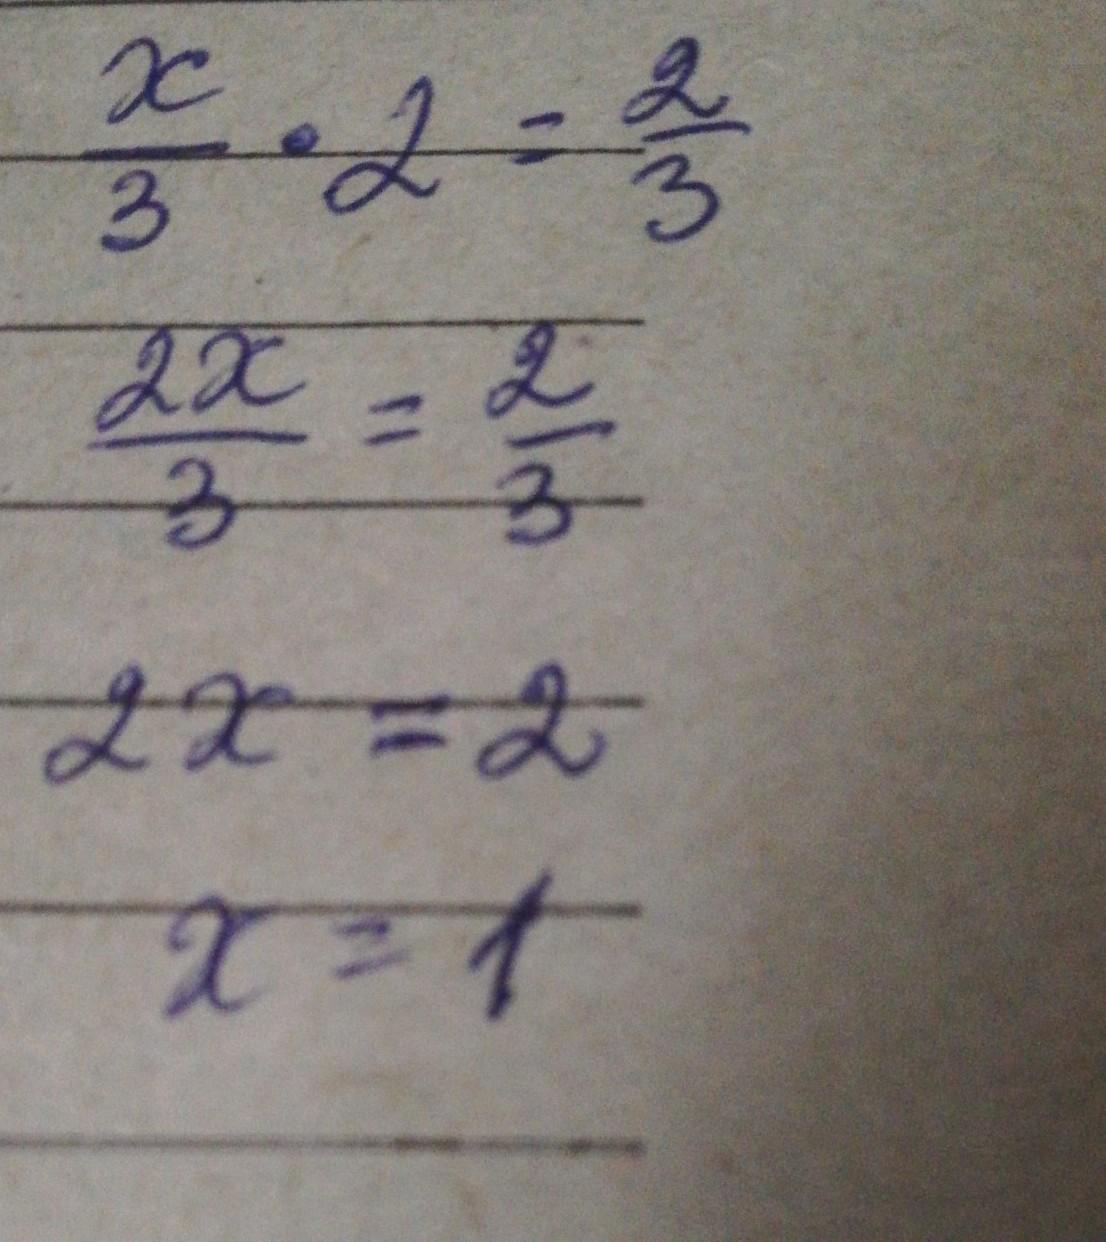 x/3 · 2 = 2/3
2x/3 = 2/3
2x = 2
x = 1